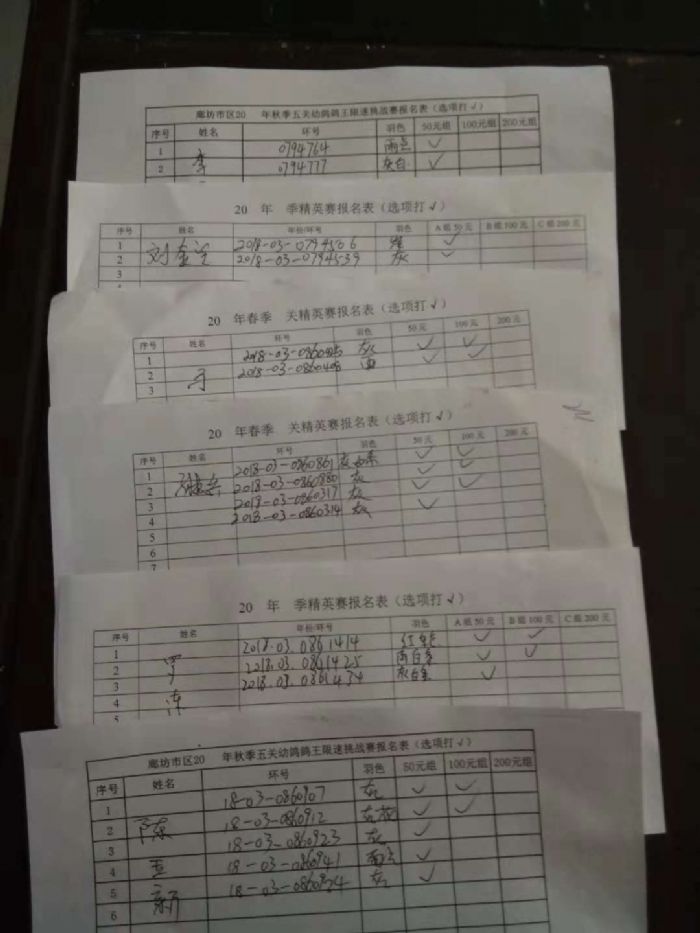 廊坊市区20 年秋季五关幼鸽鸽王限速挑战赛报名表（选项打√）
序号 姓名 环号 羽色 50元组 100元组 200元组
1 0794764 雨点 √
2 李 0794777 灰白 √
20 年 季精英赛报名表（选项打√）
序号 姓名 年份/环号 羽色 A组50元 B组100元 C组200元
1 2018-03-0794506 √
2 刘 2018-03-0794539 灰 √
3
20 年春季 关精英赛报名表（选项打√）
序号 姓名 环号 羽色 50元 100元 200元
1 灰 √ √
2 2018-03-0860408 √ √
3
20 年春季 关精英赛报名表（选项打√）
序号 姓名 环号 羽色 50元 100元 200元
1 2018-03-0860861 √ √
2 2018-03-0860880 灰 √ √
3 2018-03-0860317 灰 √ √
4 2018-03-0860314 灰 √
5
6
7
20 年 季精英赛报名表（选项打√）
序号 姓名 年份/环号 羽色 A组50元 B组100元 C组200元
1 2018.03.0861414 √ √
2 罗 2018.03.0861425 √ √
3 2018.03.0861434 √
4
5
廊坊市区20 年秋季五关幼鸽鸽王限速挑战赛报名表（选项打√）
序号 姓名 环号 羽色 50元组 100元组 200元组
1 18-03-0860907 灰 √ √
2 陈 18-03-0860912 灰花 √ √
3 18-03-0860923 灰 √
4 亚 18-03-0860941 雨点 √
5 新 18-03-0860924 灰 √
6